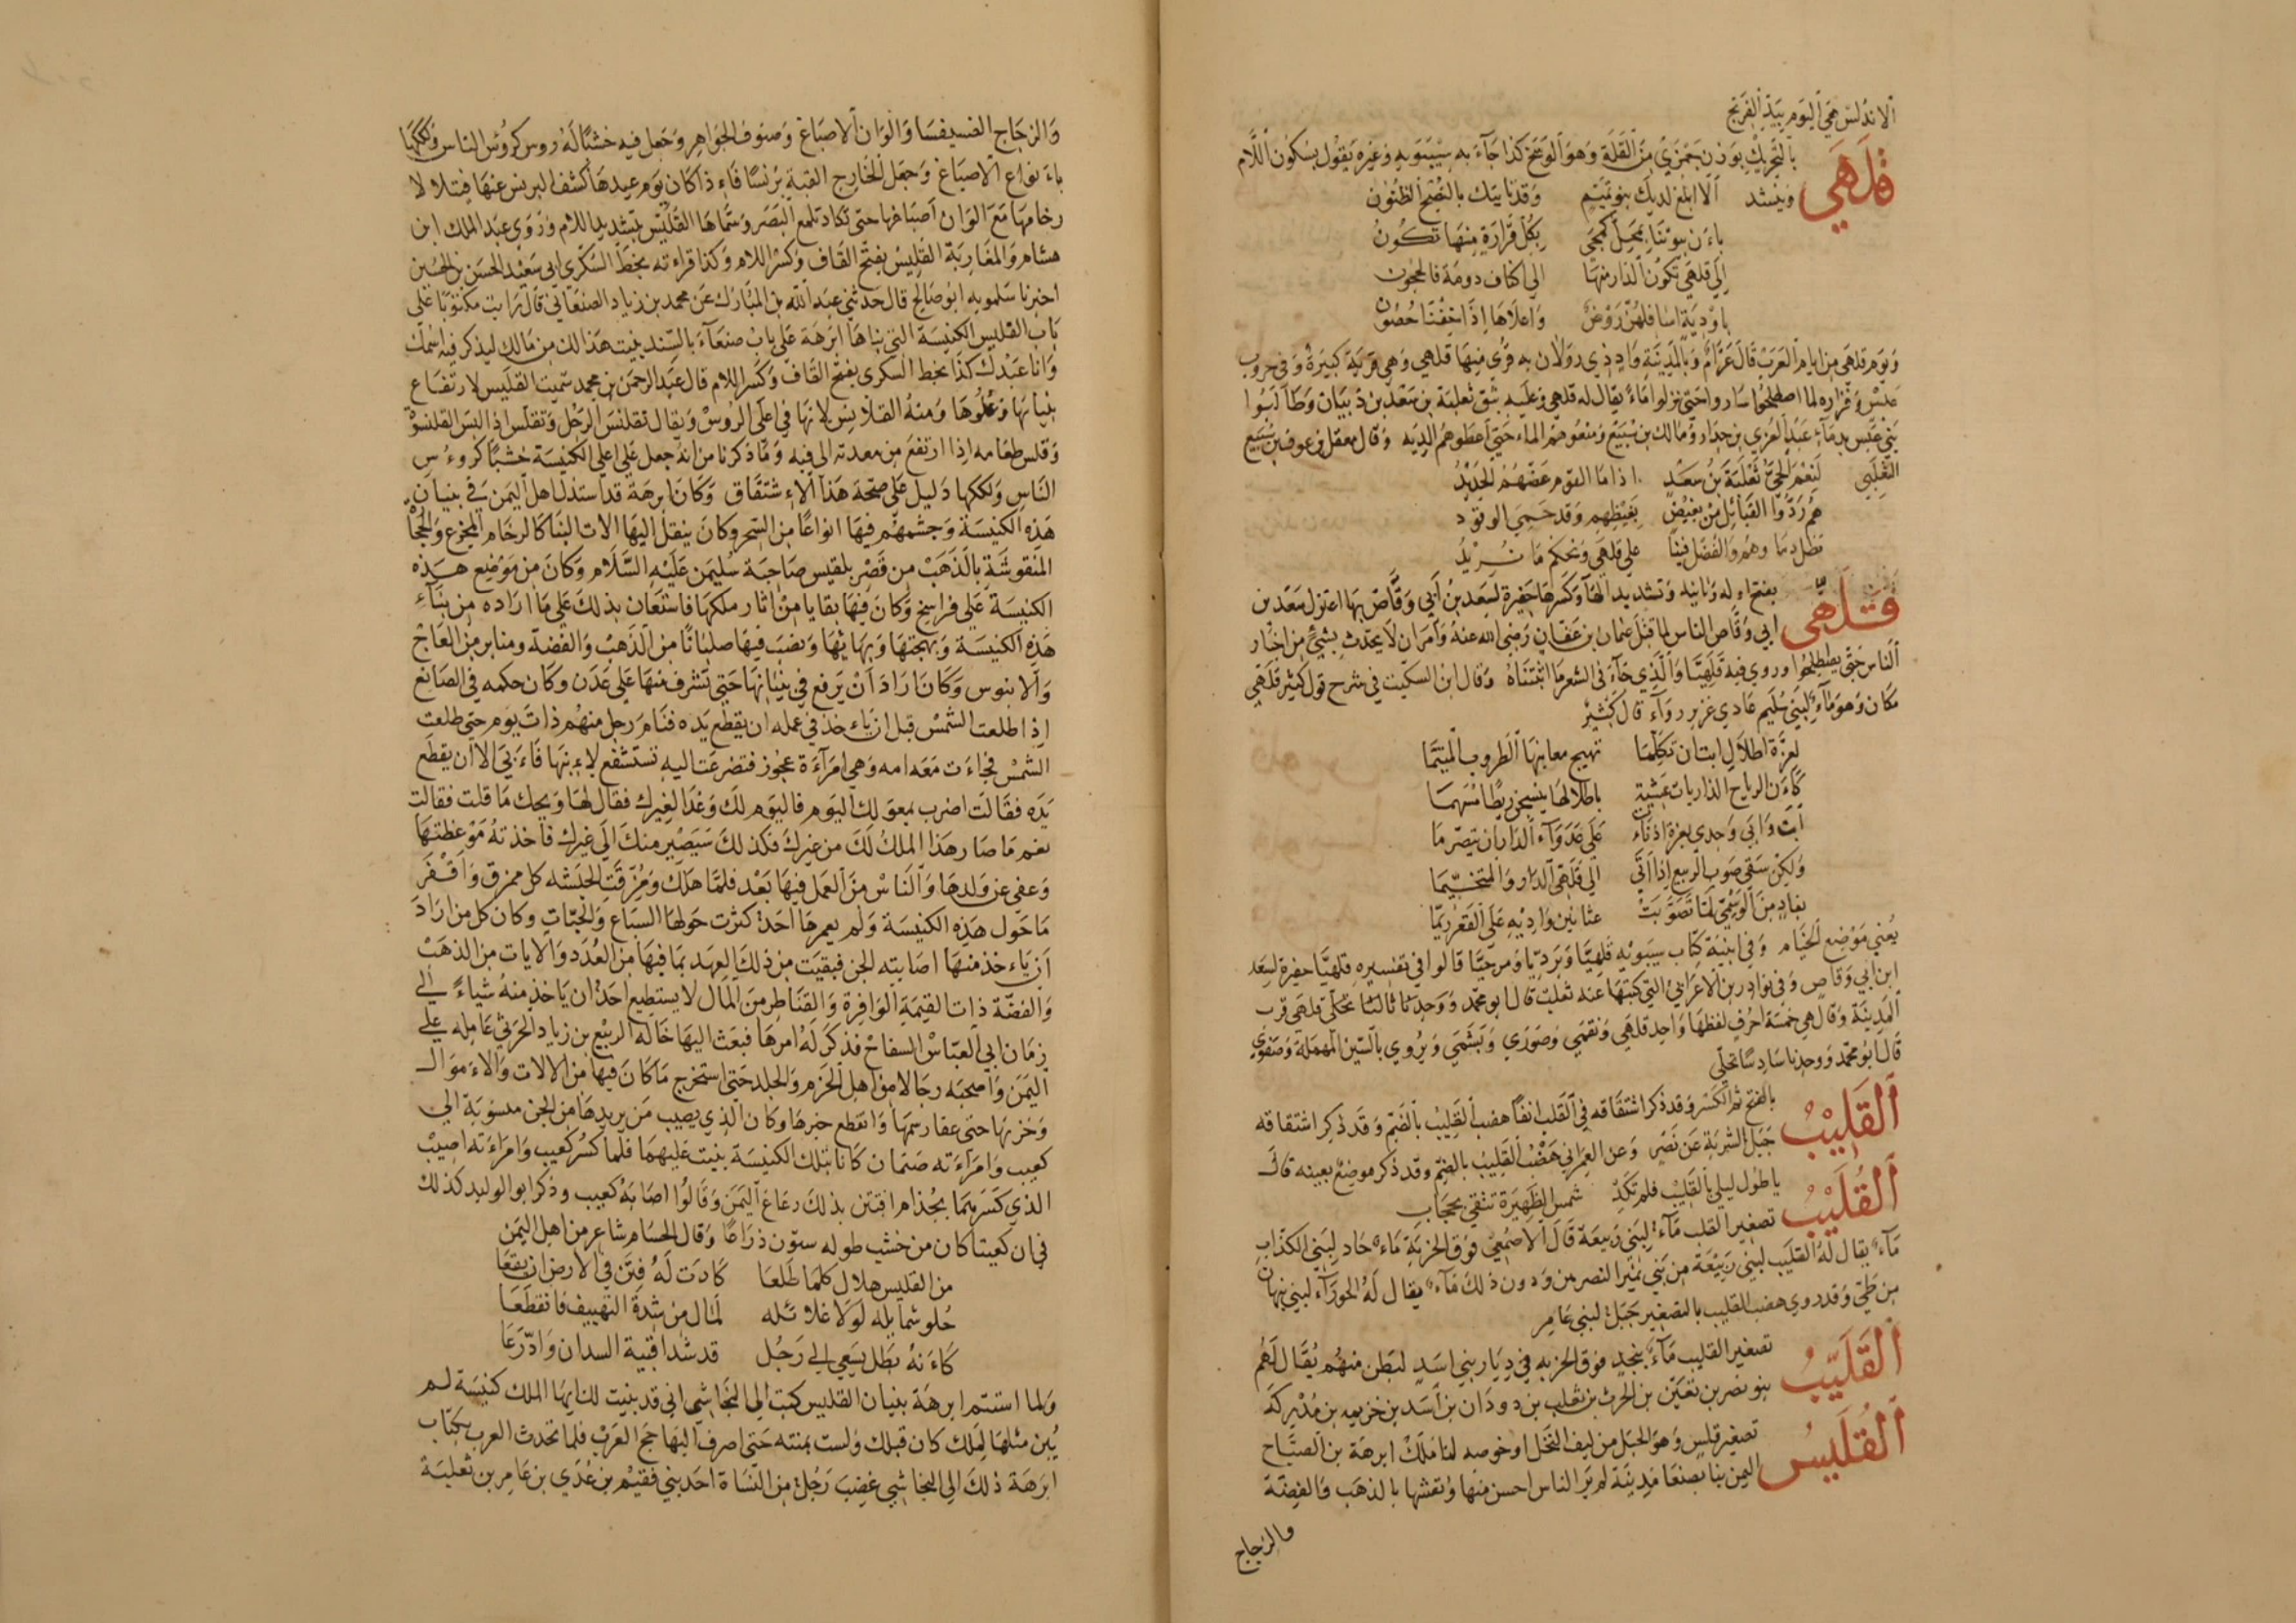 الاندلس هي اليوم بيد الفرنج
قَلَهَى بالتحريك بوزن جمزى من القله وهو الوسخ كذا جاء به سيبويه وغيره يقول بسكون اللام
وينشد الا ابلغ لديك بنو تميم وقد ياتيك بالنصح الظنون
باءن بيوتنا بمحل حجى بكل قرارة منها تكون
الى قلهى تكون الدار منها الى اكناف دومة فالحجون
باودية اسافلهن روض واعلاها اذا خفنا حصون
ويوم قلهى من ايام العرب قال عرام وبالمدينة واد ذي رولان به قرى منها قلهي وهي قرية كبيرة وفي حروب
عبس وفزاره لما اصطلحوا ساروا حتى نزلوا ماء يقال له قلهى وعليه بثق ثعلبة بن سعد بن ذبيان وطالبوا
بني عبس بدماء عبد العزى بن جدار ومالك بن سبيع ومنعوهم الماء حتى اعطوهم الديه وقال معقل بن عوف بن سبيع
الثعلبي لنعم الحي ثعلبة بن سعد اذا ما القوم عضهم الحديد
هم ردوا القبائل من بغيض بغيظهم وقد حمي الوقود
تطل دما وهم والفضل فينا على قلهى ونحكم ما نريد
قَلَهِّى بفتح اوله وثانيه وتشديد الهاء وكسرها حفيرة لسعد بن أبي وقاص بها اعتزل سعد بن
ابي وقاص الناس لما قتل عثمان بن عفان رضي الله عنه وامر ان لا يحدث بشيء من اخبار
الناس حتى يصطلحوا وروي فيه قلهيا والذي جاء في الشعر ما اثبتناه وقال ابن السكيت في شرح قول كثير قلهي
مكان وهو ماء لبني سليم عادي غزير رواء قال كثير
لعزة اطلال ابت ان تكلما تهيج مغانيها الطروب المتيما
كاءن الرياح الذاريات عشية باطلالها ينسجن ريطا مسهما
ابت وابى وجدي بعزة اذ ناءت على عدواء الدار ان يتصرما
ولكن سقى صوب الربيع اذا اتى الى قلهى الدار والمتخيما
بغاد من الوسمي لما تصوبت عثانين واديه على القعر ديما
يعني موضع الخيام وفي ابنية كتاب سيبويه قلهيا وبرديا ومرحيا قالوا في تفسيره قلهيا حفيرة لسعد
ابن ابي وقاص وفي نوادر بن الاعرابي التي كتبها عنه ثعلب قال ابو محمد ووجدنا ثالثا تحلى قلهى قرب
المدينة وقال هي خمسة احرف لفظها واحد قلهي ونقمي وصوري وبشمي ويروي بالسين المهملة وضفوي
قال ابو محمد ووجدنا سادسا تحلى
اَلْقَلِيْبُ بالفتح ثم الكسر وقد ذكر اشتقاقه في القلب انفا هضب القليب بالضم وقد ذكر اشتقاقه
جبل الشربة عن نصر وعن العمراني هضب القليب بالضم وقد ذكر موضع بعينه قال
يا طول ليلي بالقليب فلم تكد شمس الظهيرة تتقي بحجاب
اَلْقُلَيْبُ تصغير القلب ماء لبني ربيعة قال الاصمعي فوق الخربة ماء حاد لبني الكذاب
ماء يقال له القليب لبني ربيعة من بني نمير النصر من ودون ذلك ماء يقال له الحوراء لبني نبهان
من طي وقد روي هضب القليب بالتصغير جبل لبني عامر
اَلْقُلَيِّبُ تصغير القليب ماء بنجد فوق الخربه في ديار بني اسد لبطن منهم يقال لهم
بنو نصر بن نعين بن الحرث بن ثعلب بن دودان بن اسد بن خزيمه بن مدركة
اَلْقُلَيْسُ تصغير قلس وهو الحبل من ليف النخل او خوصه لما ملك ابرهة بن الصباح
اليمن بنا بصنعا مدينة لم ير الناس احسن منها ونقشها بالذهب والفضة
والزجاج
والزجاج الفسيفسا والوان الاصباغ وصنوف الجواهر وجعل فيه خشبا له روس كرؤس الناس ولككها
باءنواع الاصباغ وجعل لخارج القبة برنسا فاءذا كان يوم عيدها كشف البرنس عنها فيتلالا
رخامها مع الوان اصباغها حتى تكاد تلمع البصر وسماها القليس بتشديد اللام وروي عبد الملك ابن
هشام والمغاربة القليس بفتح القاف وكسر اللام وكذا قراءته بخط السكري ابي سعيد الحسن بن الحسين
اخبرنا سلمويه ابو صالح قال حدثني عبد الله بن المبارك عن محمد بن زياد الصنعاني قال رايت مكتوبا على
باب القليس الكنيسة التي بناها ابرهة على باب صنعاء بالسند بنيت هذا لك من مالك ليذكر فيه اسمك
وانا عبدك كذا بخط السكري بفتح القاف وكسر اللام قال عبد الرحمن بن محمد سميت القليس لارتفاع
بنيانها وعلوها ومنه القلانيس لانها في اعلى الروس ويقال تقلنس الرجل وتقلس اذا لبس القلنسوة
وقلس طعامه اذا ارتفع من معدته الى فيه وما ذكرنا من انه جعل على اعلى الكنيسة خشبا كروءس
الناس ولككها دليل على صحة هذا الاءشتقاق وكان ابرهة قد استذل اهل اليمن في بنيان
هذه الكنيسة وجشمهم فيها انواعا من السخر وكان ينقل اليها الات البنا كالرخام المجزع والحجار
المنقوشة بالذهب من قصر بلقيس صاحبة سليمن عليه السلام وكان من موضع هذه
الكنيسة على فراسخ وكان فيها بقايا من اثار ملكها فاستعان بذلك على ما اراده من بناء
هذه الكنيسة وبهجتها وبهائها ونصب فيها صلبانا من الذهب والفضة ومنابر من العاج
والابنوس وكان اراد ان يرفع في بنيانها حتى تشرف منها على عدن وكان حكمه في الصانع
اذا طلعت الشمس قبل ان ياءخذ في عمله ان يقطع يده فنام رجل منهم ذات يوم حتى طلعت
الشمس فجاءت معه امه وهي امراءة عجوز فتضرعت اليه تستشفع لاءبنها فاءبى الا ان يقطع
يده فقالت اضرب بمعولك اليوم فاليوم لك وغدا لغيرك فقال لها ويحك ما قلت فقالت
نعم ما صار هذا الملك لك من غيرك فكذلك سيصير منك الى غيرك فاخذته موعظتها
وعفي عن ولدها والناس من العمل فيها بعد فلما هلك ومزقت الحبشه كل ممزق واقفر
ما حول هذه الكنيسة ولم يعمرها احد كثرت حولها السباع والحيات وكان كل من اراد
ان ياءخذ منها اصابته الجن فبقيت من ذلك العهد بما فيها من العدد والايات من الذهب
والفضة ذات القيمة الوافرة والقناطر من المال لا يستطيع احد ان ياخذ منه شياء الى
زمان ابي العباس السفاح فذكر له امرها فبعث اليها خاله الربيع بن زياد الحرثي عامله على
اليمن واصحبه رجالا من اهل الحزم والجلد حتى استخرج ما كان فيها من الالات والاءموال
وخربها حتى عفا رسمها وانقطع خبرها وكان الذي يصيب من يريدها من الجن منسوبة الى
كعيب وامراءته صنمان كانا بتلك الكنيسة بنيت عليهما فلما كسر كعيب وامراءته اصيب
الذي كسرهما بجذام افتتن بذلك رعاع اليمن وقالوا اصابه كعيب وذكر ابو الوليد كذلك
في ان كعيبا كان من خشب طوله ستون ذراعا وقال الحسام شاعر من اهل اليمن
من القليس هلال كلما طلعا كادت له فتن في الارض ان يقعا
حلو شمايله لولا غلائله لمال من شدة التهييف فانقطعا
كاءنه بطل يسعى الى رجل قد شد اقبية السدان وادرعا
ولما استتم ابرهة بنيان القليس كتب الى النجاشي اني قد بنيت لك ايها الملك كنيسة لم
يبن مثلها لملك كان قبلك ولست بمنته حتى اصرف اليها حج العرب فلما تحدث العرب بكتاب
ابرهة ذلك الى النجاشي غضب رجل من النساة احد بني فقيم بن عدي بن عامر بن ثعلبة